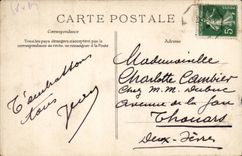 CARTE POSTALE
Correspondance
Tous les pays étrangers n'acceptent pas la
correspondance au recto, se renseigner à la Poste
T'embrassons
tous
Mademoiselle
Charlotte Cambier
Chez M. M. Dubuc
Avenue de la Gare
Thouars
Deux-Sèvres